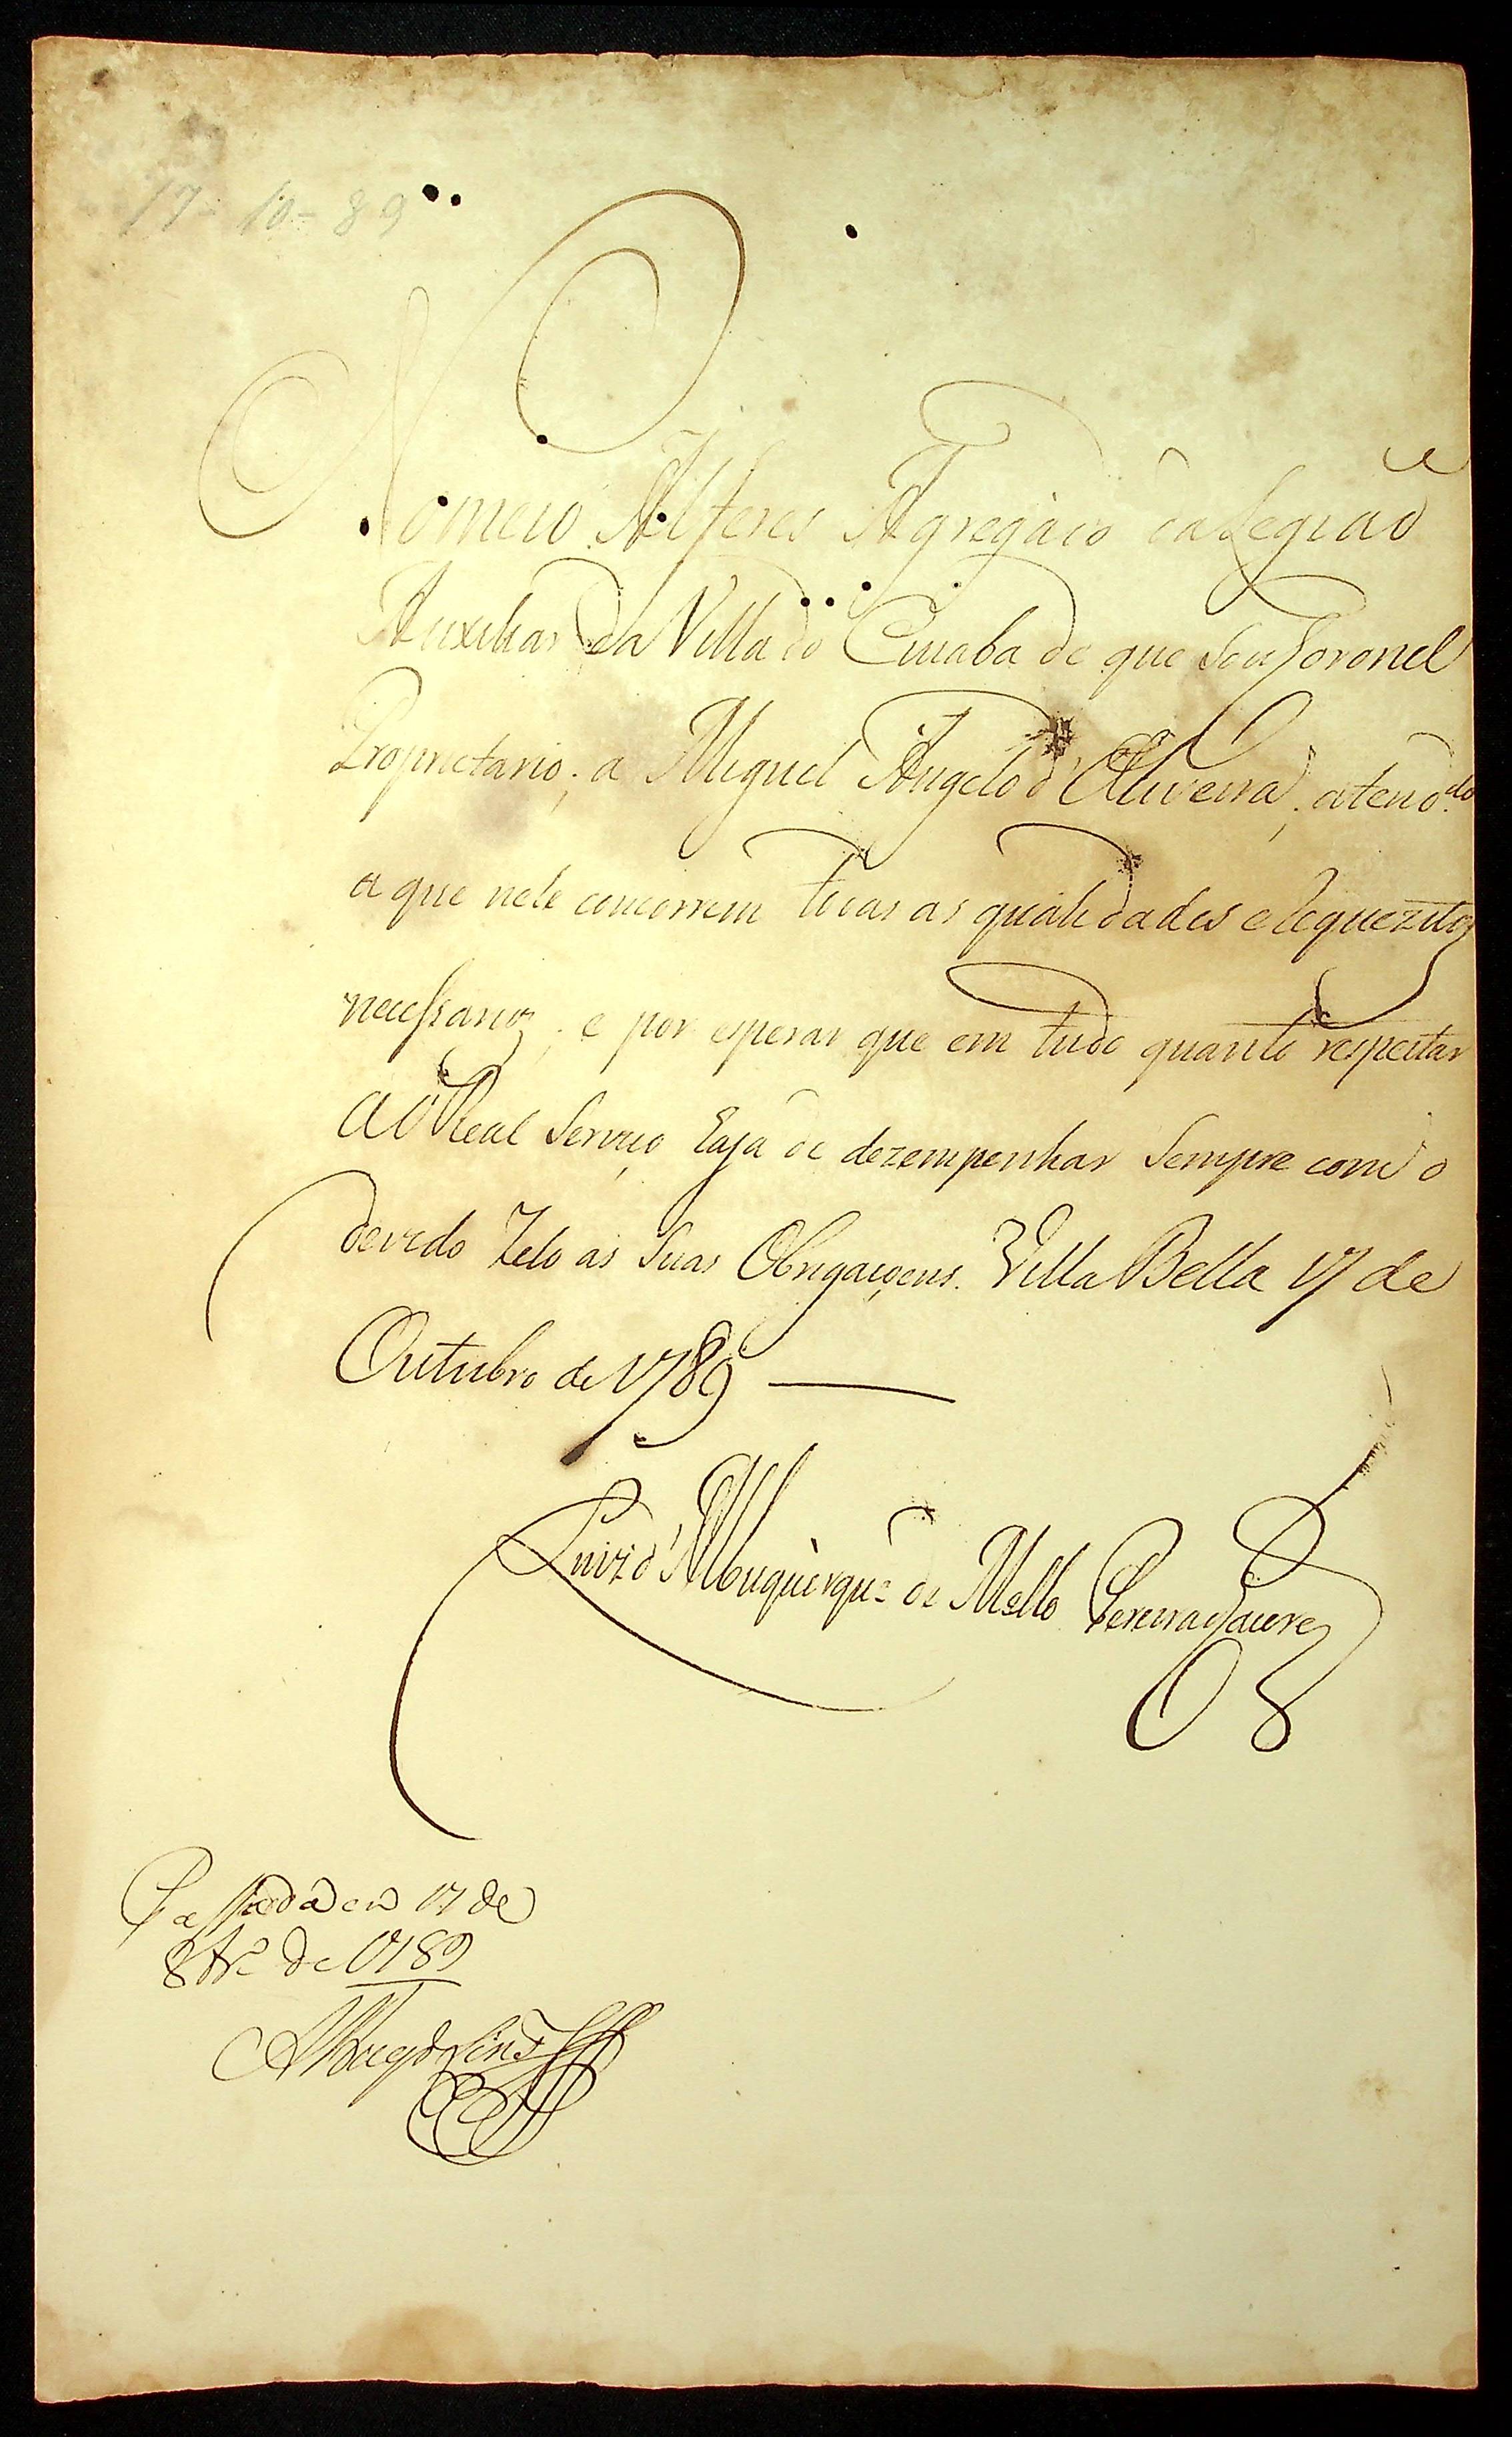 17-10-89
Nomeio Alferes Agregado da Legiaõ
Auxiliar da Villa do Cuiaba de que sou Coronel
Proprietario; a Miguel Angelo d'Oliveira; atenddo
a que nele concorrem todas as qualidades e requezitos
necessarios; e por esperar que em tudo quanto respeitar
ao Real Serviço haja de dezempenhar Sempre com o
devido Zelo as Suas Obrigaçoens. Villa Bella 17 de
Outubro de 1789
Luiz d'Albuquerque de Mello Pereira e Caceres
Passada em 17 de
8br.º de 1789